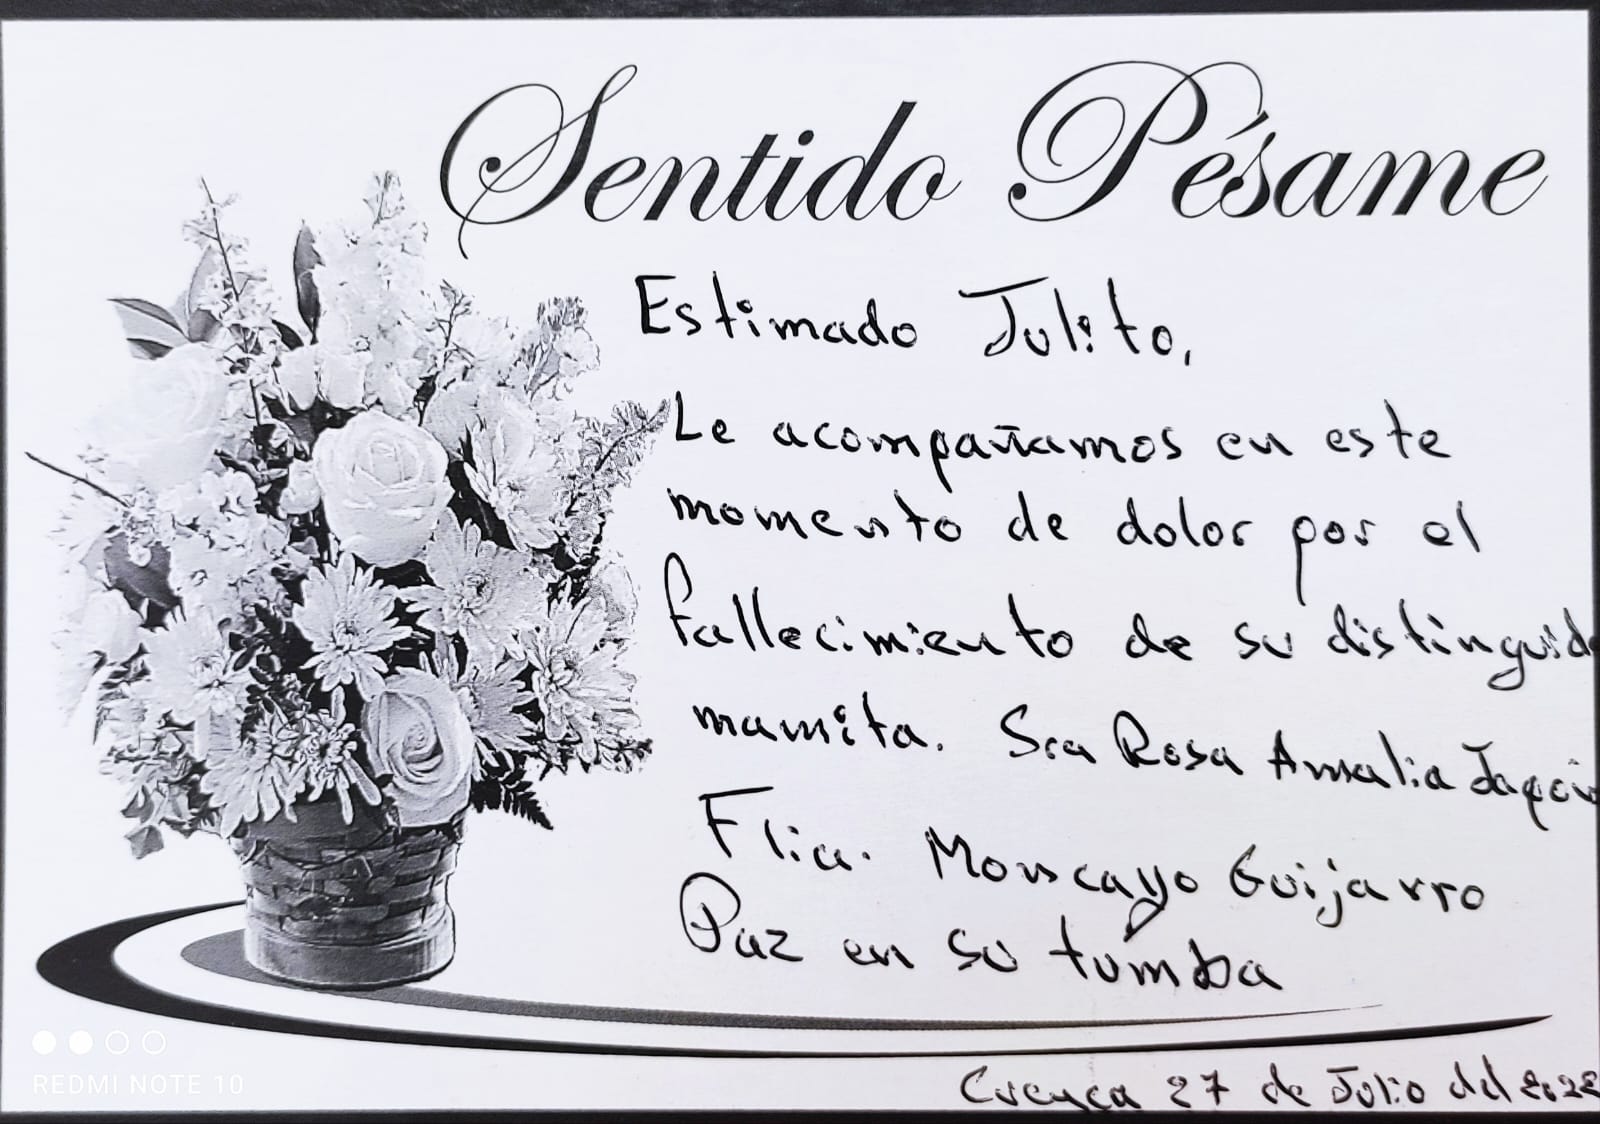 Sentido Pésame
Estimado Julito,
Le acompañamos en este
momento de dolor por el
fallecimiento de su distinguida
mamita. Sra Rosa Amalia
Flia. Moncayo Guijarro
Paz en su tumba
Cuenca 27 de Julio del 2022
REDMI NOTE 10